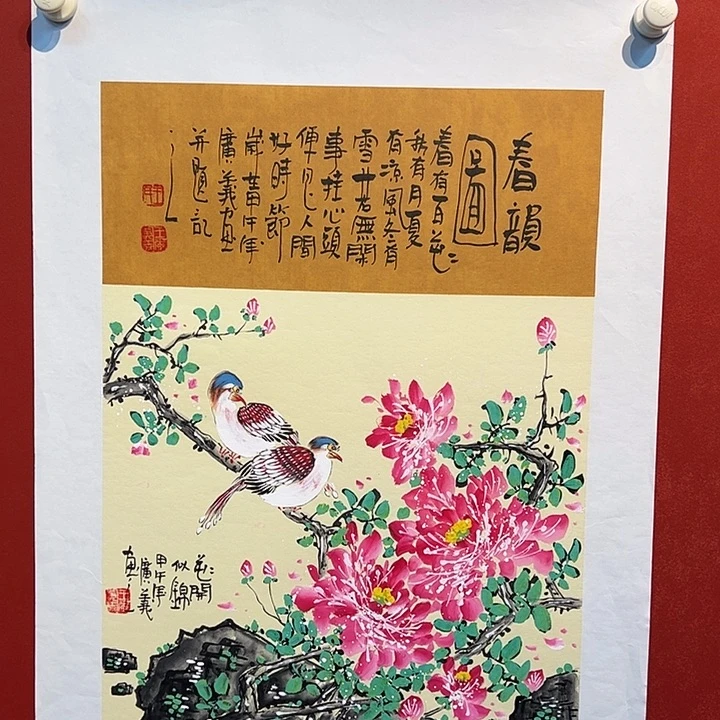 春韻
圖
春有百花
秋有月夏
有涼風冬有
雪若無閑
事挂心頭
便是人間
好時節
歲甲午年
廣義畫
并題記
之
花開
似錦
甲午年
廣義
畫